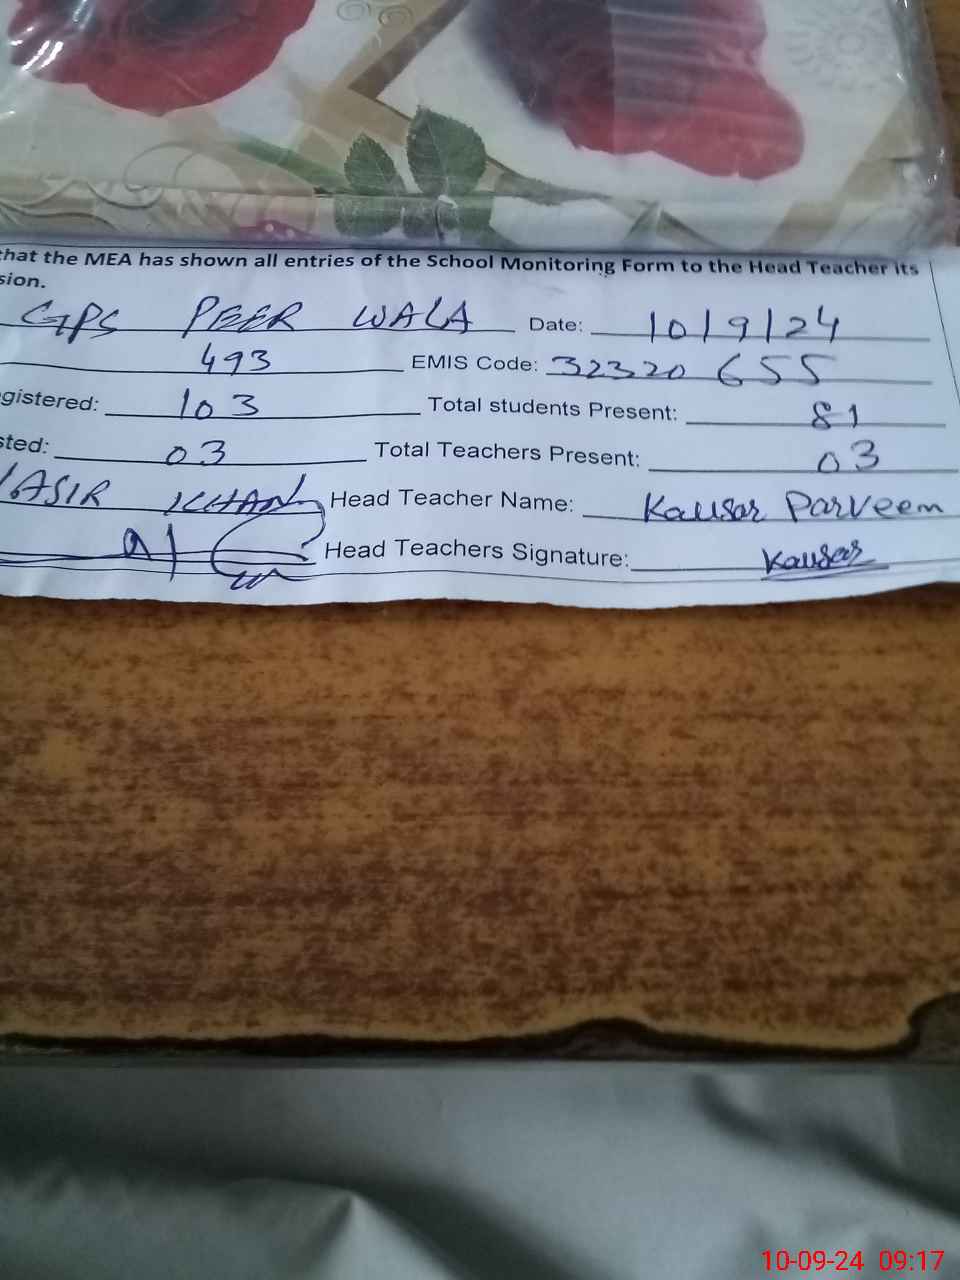 that the MEA has shown all entries of the School Monitoring Form to the Head Teacher its
sion.
GPS PEER WALA Date: 10/9/24
493 EMIS Code: 32320 655
gistered: 103 Total students Present: 81
sted: 03 Total Teachers Present: 03
ASIR KHAN Head Teacher Name: Kausar Parveen
Head Teachers Signature: Kausar
10-09-24 09:17